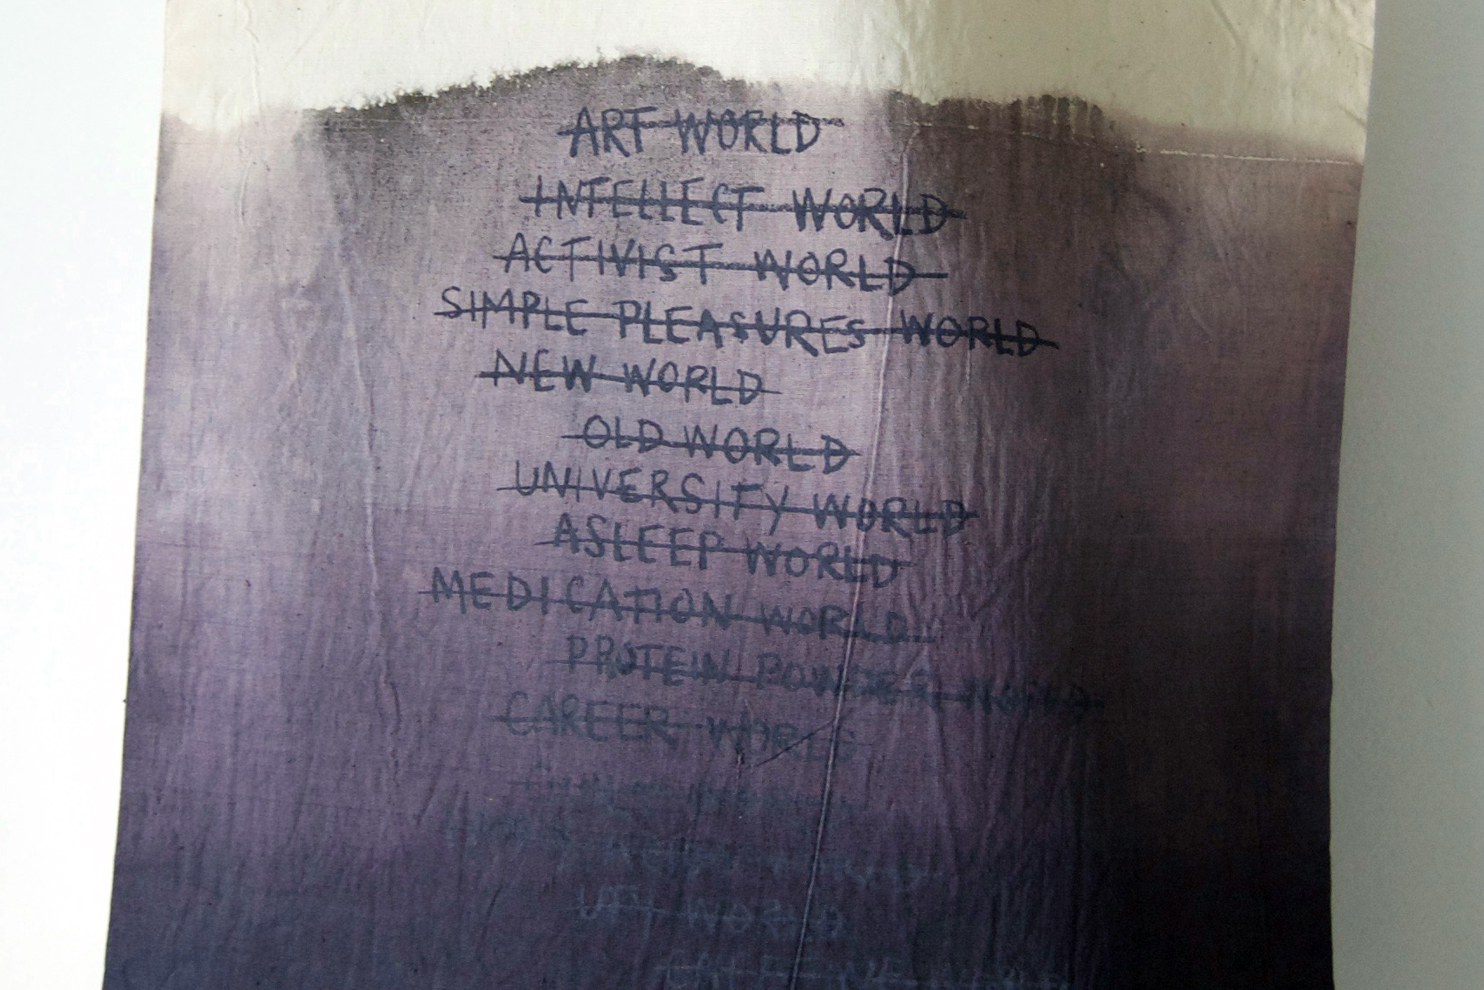 ART WORLD
INTELLECT WORLD
ACTIVIST WORLD
SIMPLE PLEASURES WORLD
NEW WORLD
OLD WORLD
UNIVERSITY WORLD
ASLEEP WORLD
MEDICATION WORLD
PROTEIN POWDER WORLD
CAREER WORLD
WORLD
WORLD